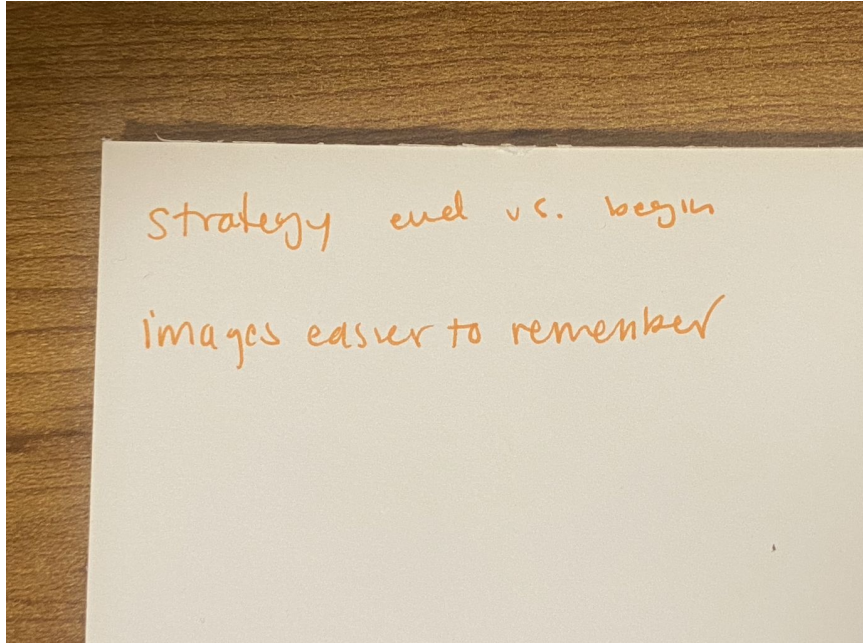 strategy end vs. begin
images easier to remember